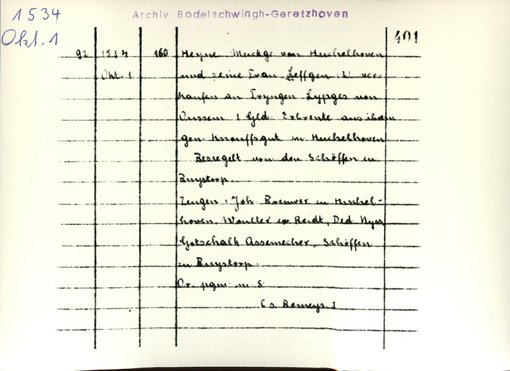 1534
Okt. 1
Archiv Bodelschwingh-Geretzhoven
401
92 1534 160 Heyne Muckge von Huchelhoven
Okt. 1 und seine Frau Zeffgen ver-
kaufen an Tryngen Lypges von
Oussem 1 Gld. Erbrente aus ihrem
gen. Knauffsgut in Huchelhoven
Besiegelt von den Schöffen in
Buystorp.
Zeugen: Joh. in Huchel-
hoven, Woulter zo Reidt, Ded. Nyss
Gotschalk Assemecher, Schöffen
in Buystorp.
Or. pgm. m. S.
(s. Remeys.)